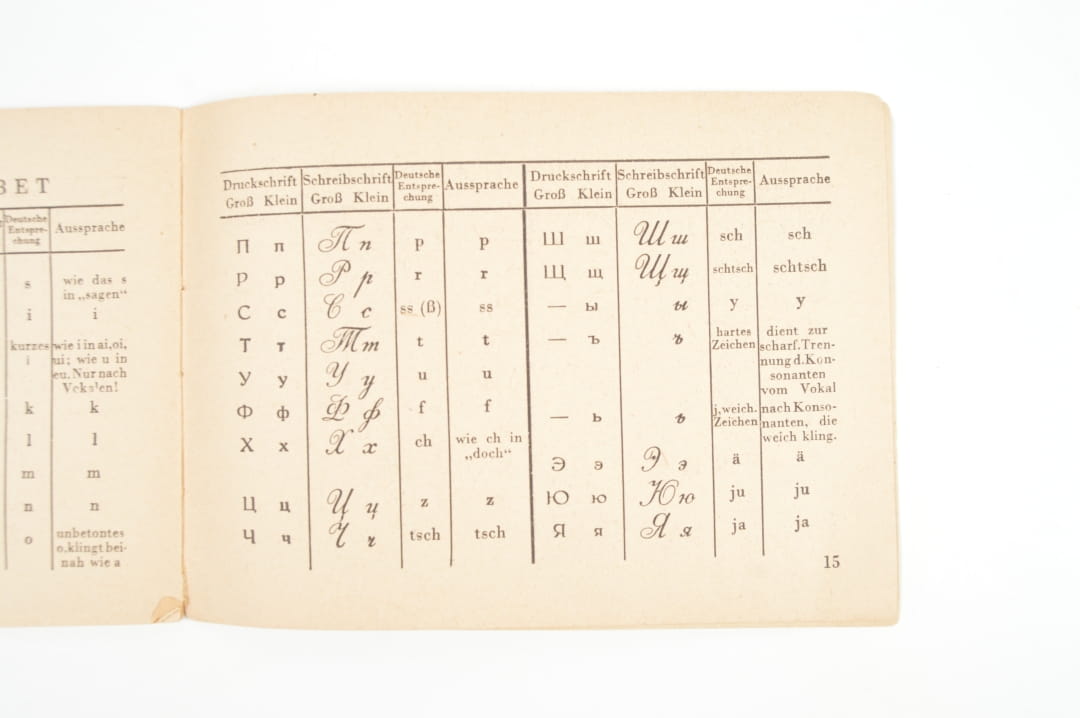 BET
Deutsche Entspre-chung Aussprache
s wie das s
in „sagen“
i i
kurzes i wie i in ai,oi,
ui; wie u in
eu. Nur nach
Vokalen!
k k
l l
m m
n n
o unbetontes
o, klingt bei-
nah wie a
Druckschrift Schreibschrift Deutsche Entspre-chung Aussprache
Groß Klein Groß Klein
П п П п p p
Р р Р р r r
С с С с ss (ß) ss
Т т Т т t t
У у У у u u
Ф ф Ф ф f f
Х х Х х ch wie ch in
„doch“
Ц ц Ц ц z z
Ч ч Ч ч tsch tsch
Druckschrift Schreibschrift Deutsche Entspre-chung Aussprache
Groß Klein Groß Klein
Ш ш Ш ш sch sch
Щ щ Щ щ schtsch schtsch
— ы ы y y
— ъ ъ hartes Zeichen dient zur
scharf. Tren-
nung d. Kon-
sonanten
vom Vokal
— ь ь j, weich. Zeichen nach Konso-
nanten, die
weich kling.
Э э Э э ä ä
Ю ю Ю ю ju ju
Я я Я я ja ja
15